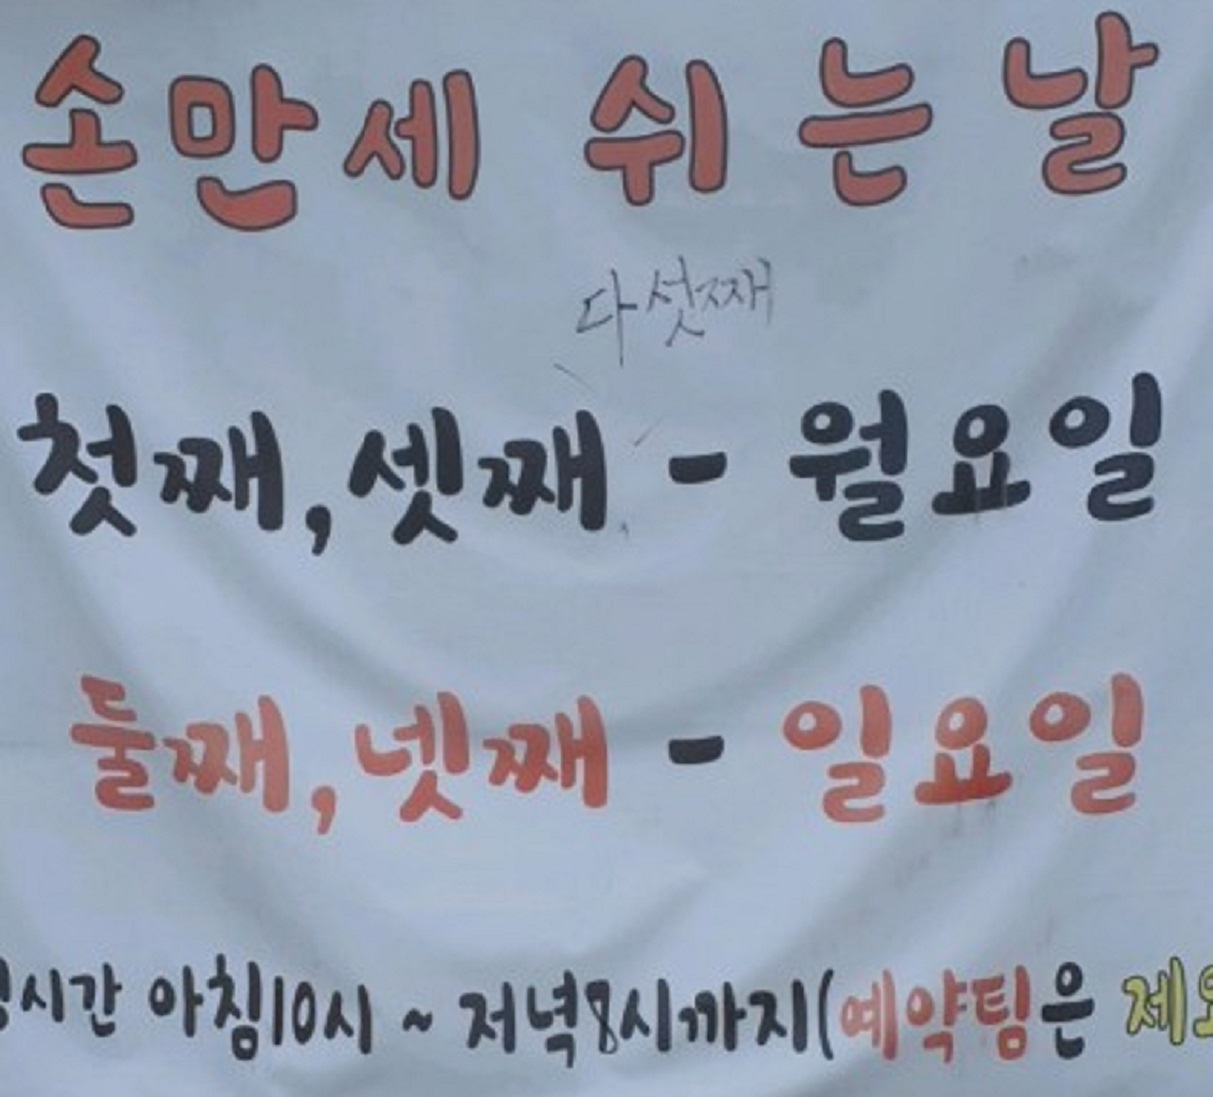 손만세 쉬는 날
다섯째
첫째, 셋째 - 월요일
둘째, 넷째 - 일요일
아침10시 ~ 저녁8시까지(예약팀은